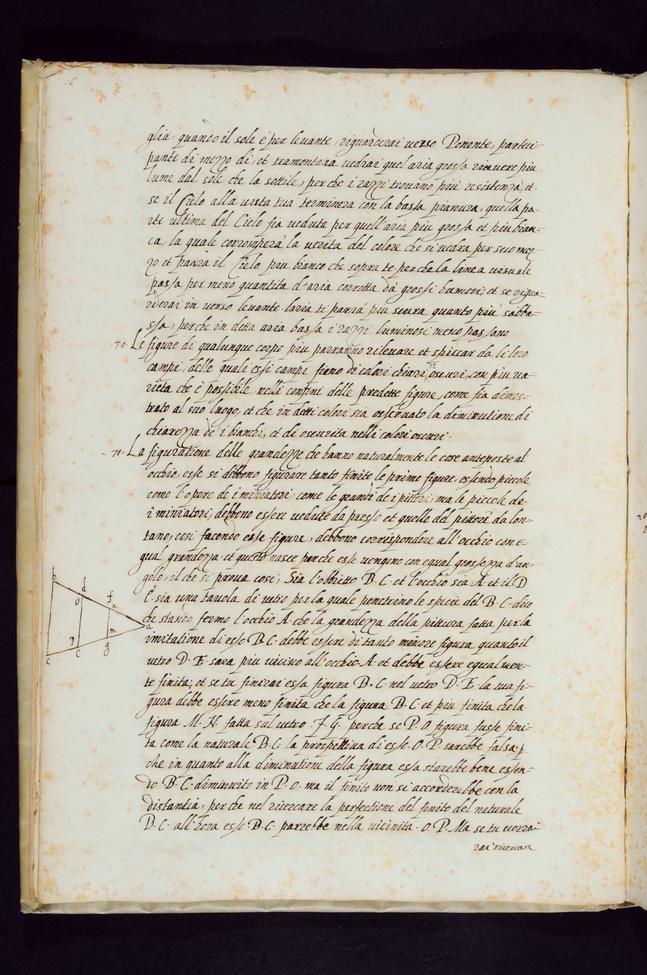 16
glia, quando il sole è per levante, riguarderai verso Ponente, partici-
pante di mezzo dì, et tramontana vedrai quel aria grossa ricevere piu
lume dal sole che la sottile, perche i razzi trovano piu resistenza, et
se il Cielo alla vista tua terminera con la bassa pianura, quella pa-
rte ultima del Cielo fia veduta per quell'aria piu grossa et piu bian-
ca, la quale corromperà la verita del colore che si vedra per suo me-
zo et parrà il Cielo piu bianco che sopra te perche la linea visuale
passa per meno quantita d'aria corrotta da grossi humori; et se rigua-
rderai in verso levante l'aria ti parrà piu scura quanto piu s'abba-
ssa, perche in detta aria bassa i razzi luminosi meno passono
·70· Le figure di qualunque corpo piu parranno rilevare et spiccar da li loro
campi, delle quali essi campi fieno di colori chiari, et oscuri, con piu va-
rieta che è possibile nelli confini delle predette figure, come fia dimos-
trato al suo luogo, et che in detti colori sia osservato la diminutione di
chiarezza de i bianchi, et de oscurita nelli colori oscuri·
·71· La figuratione delle grandezze che hanno naturalmente le cose anteposte al
occhio, esse si debbono figurare tanto finite le prime figure, essendo piccole
come l'opere de i miniatori come le grandi de i pittori, ma le piccole de
i miniatori, debbono essere vedute da presso et quelle del pittore da lon-
tano, così facendo esse figure, debbono corrispondere all'occhio con e-
qual grandezza et questo nasce perche esse vengino con equal grossezza d'an-
golo, il che si prova cosi, Sia l'obbietto B·C· et l'occhio sia A· et il D·
C· sia una Tavola di vetro per la quale penetrino le spicie del B·C· dico
che stando fermo l'occhio A· che la grandezza della pittura fatta per la
imitatione di esso B·C· debbe essere di tanto minore figura quanto il
vetro D·E· sara piu vicino all'occhio A· et debbe essere equalmen-
te finita; et se tu finirai essa figura B·C· nel vetro D·E· la tua fi-
gura debbe essere meno finita che la figura B·C· et piu finita che la
figura M·H· fatta sul vetro ·F·G· perche se P·O· figura fusse fini-
ta come la naturale B·C· la prospettiva di esse O·P· sarebbe falsa p
che in quanto alla diminutione della figura essa starebbe bene essen-
do B·C· diminuito in P·O· ma il finito non se accorderebbe con la
distantia, perche nel ricercare la perfectione del finito del naturale
D·C· all'hora esso B·C· parrebbe nella vicinita ·O·P· Ma se tu vorra-
rai ricercare
b
d
o
f
n
a
m
p
c
e
g